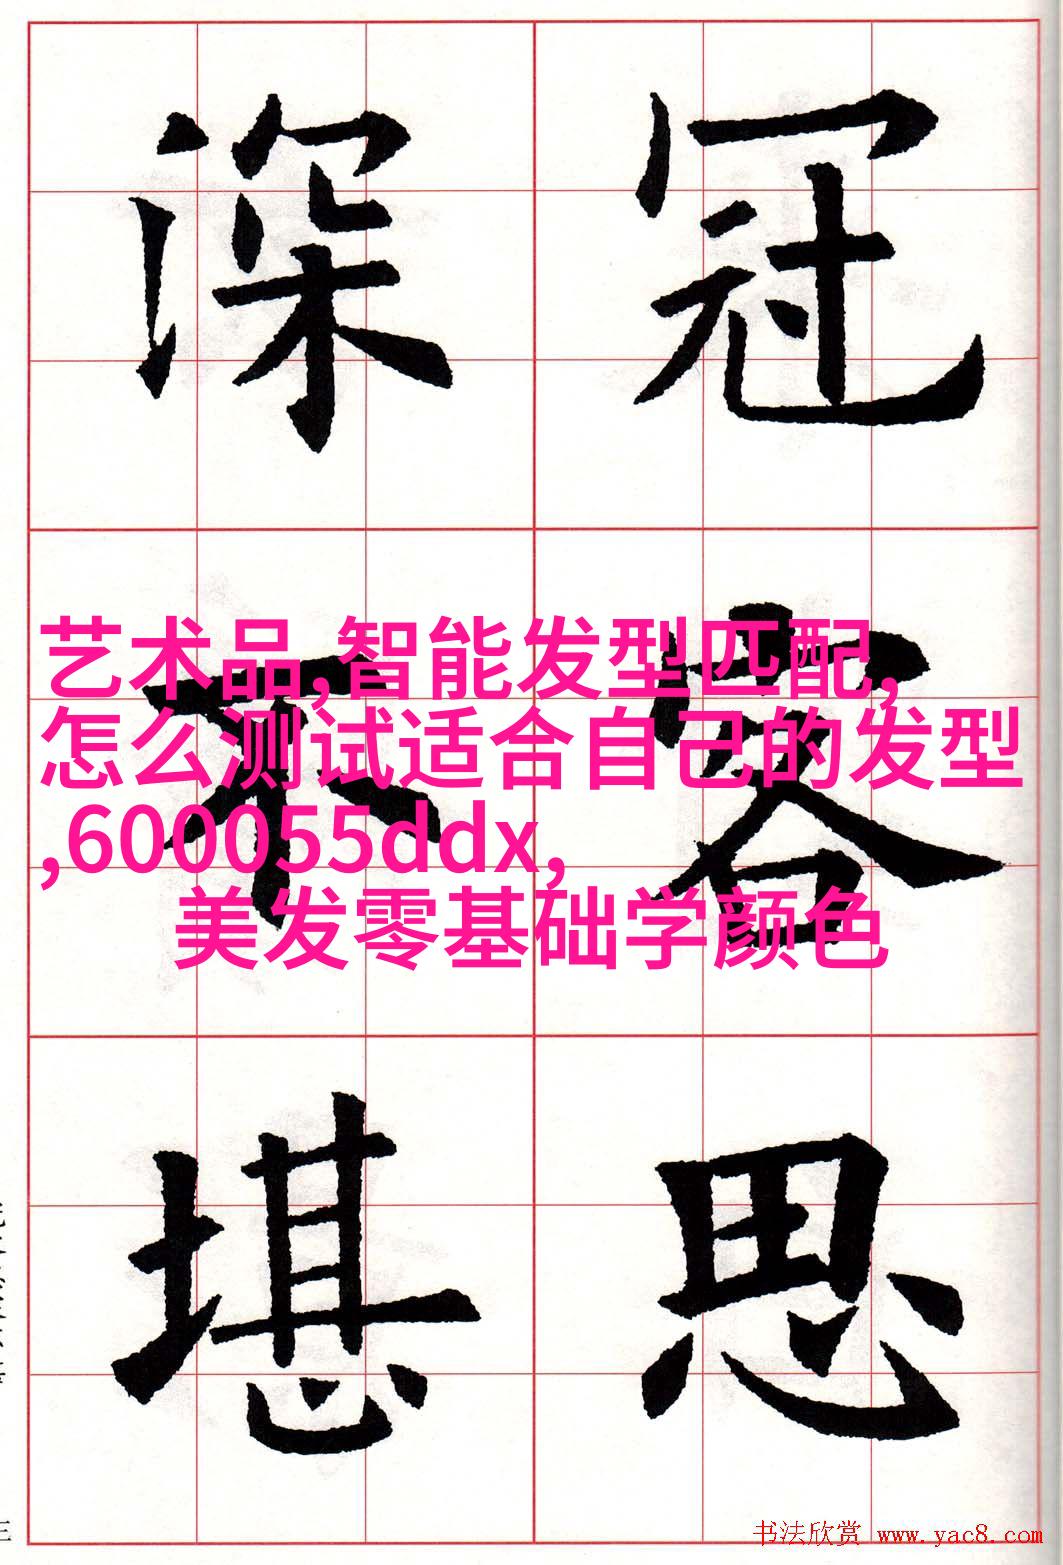 深 冠
不 容
堪 思
艺术品,智能发型匹配,
怎么测试适合自己的发型
,600055ddx,
美发零基础学颜色
三
书法欣赏 www.yac8.com